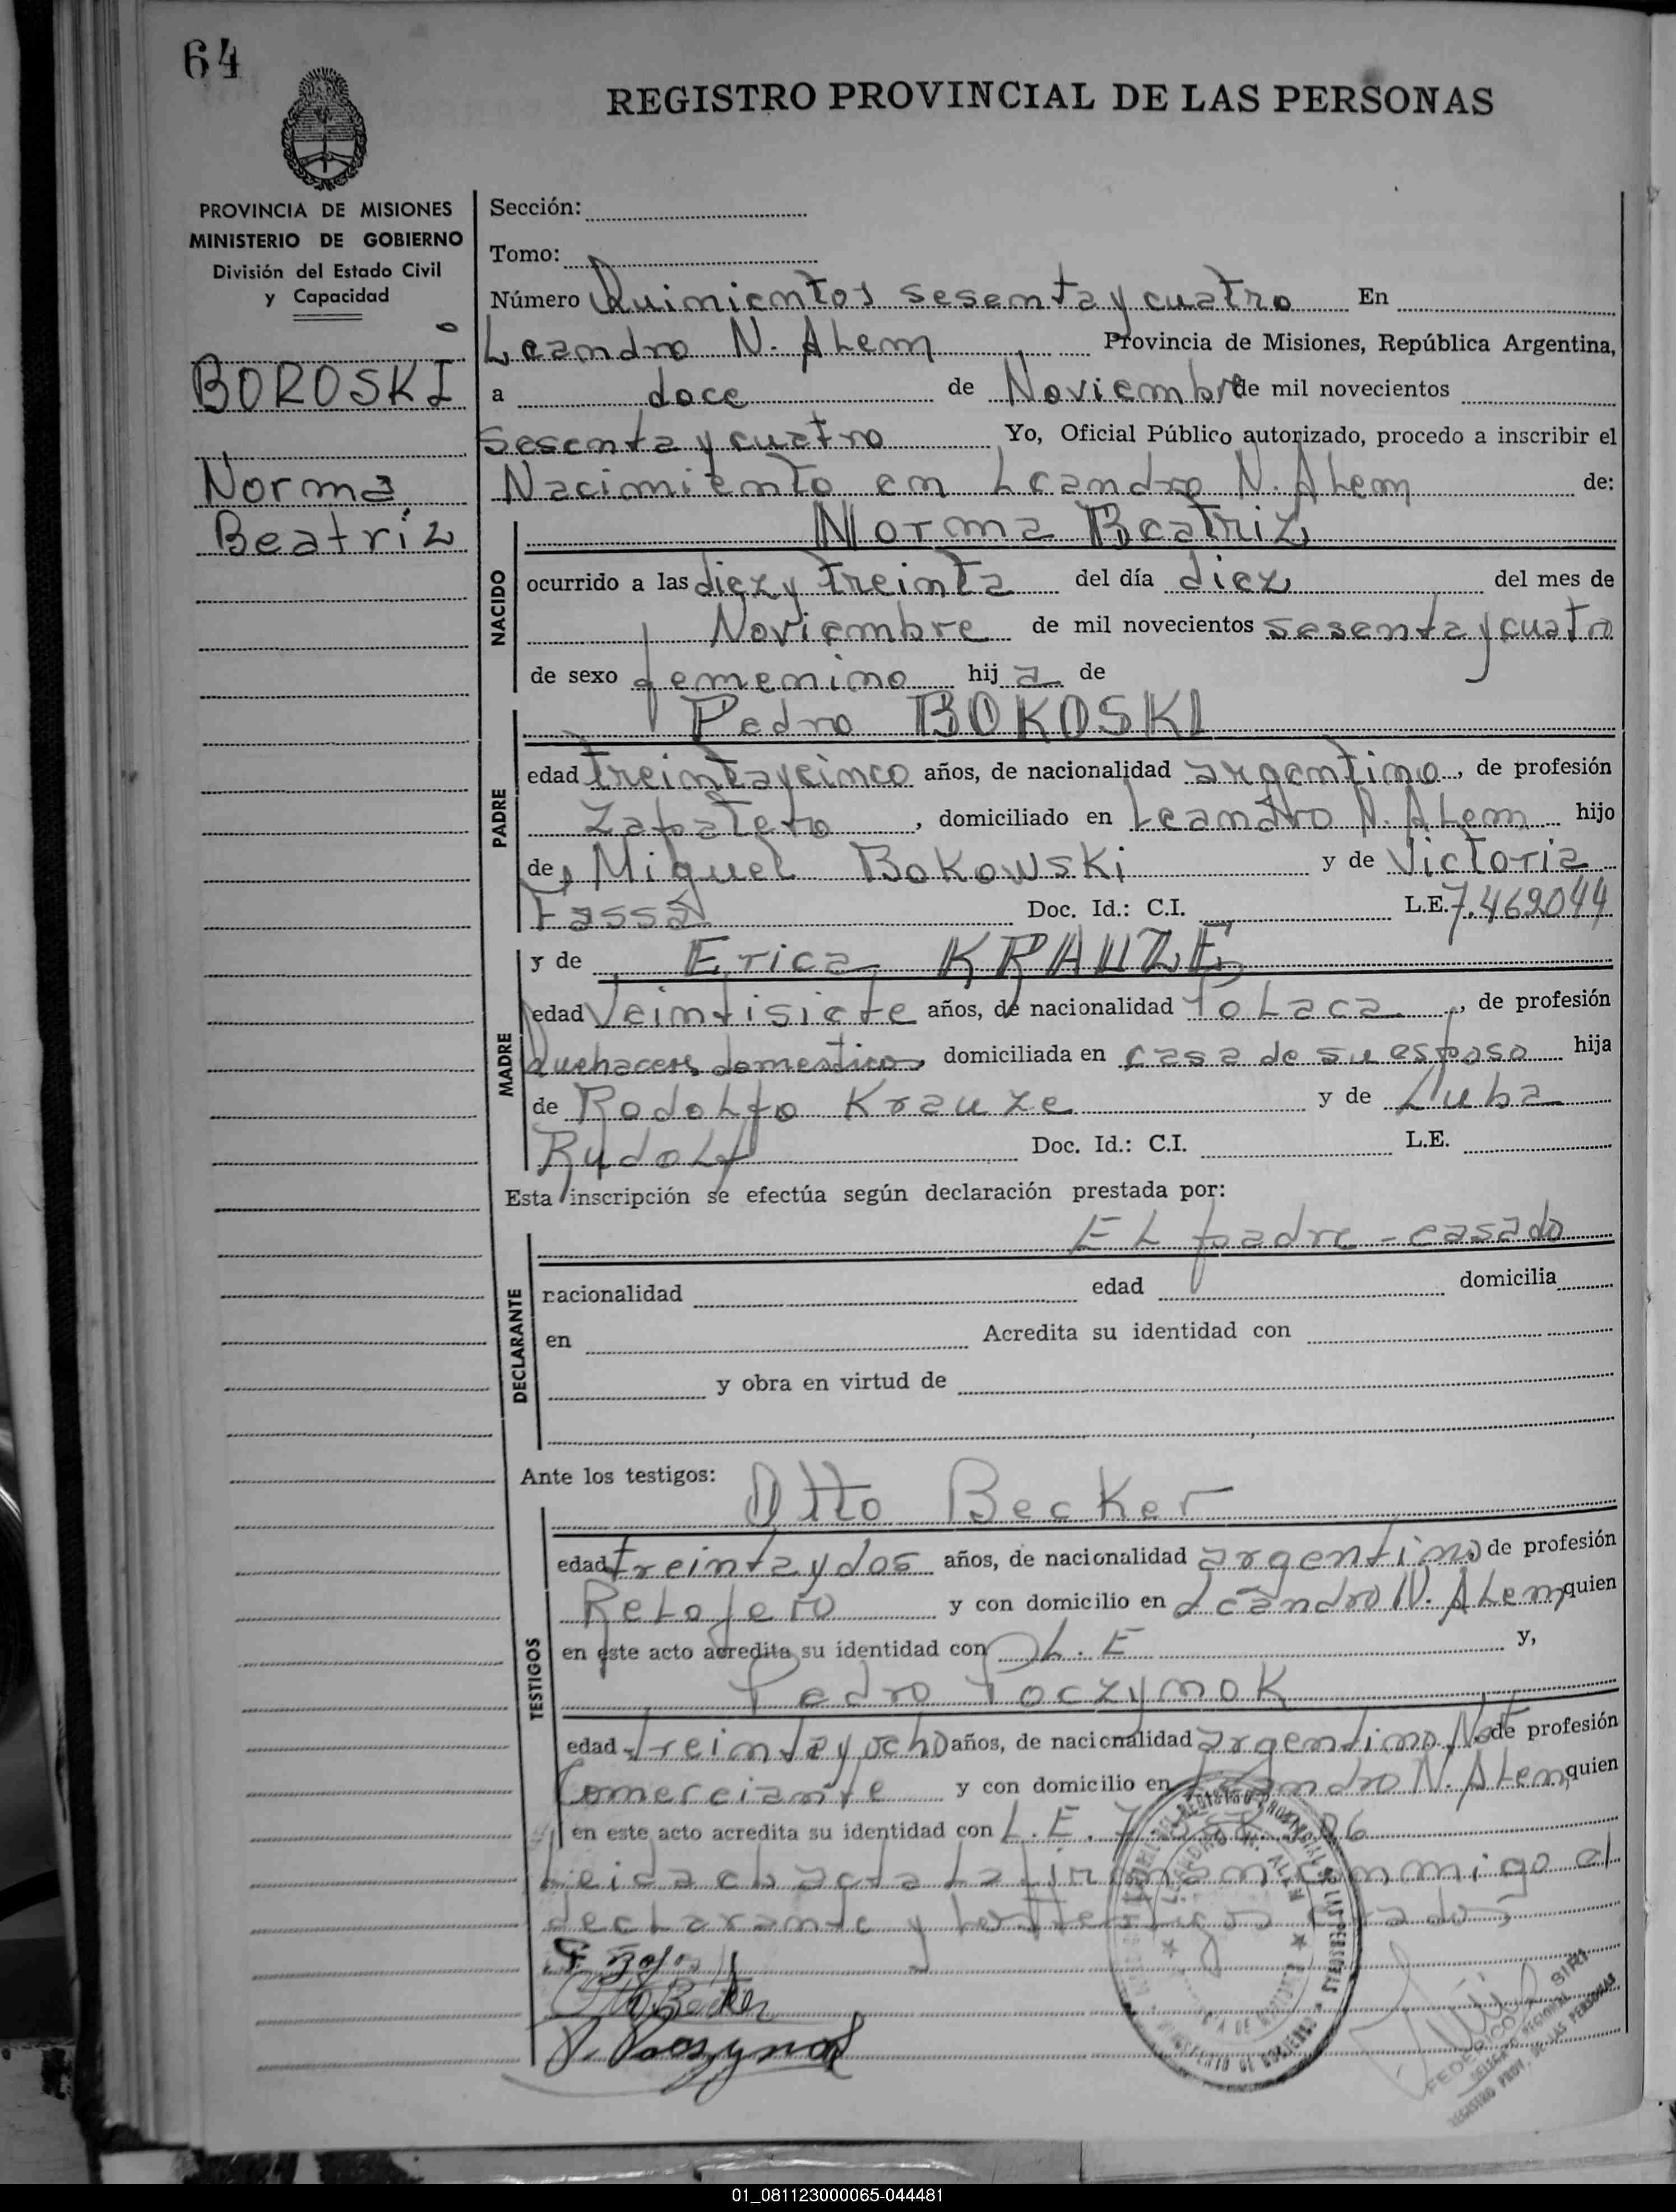 64
REGISTRO PROVINCIAL DE LAS PERSONAS
PROVINCIA DE MISIONES
MINISTERIO DE GOBIERNO
División del Estado Civil
y Capacidad
BOROSKI
Norma
Beatríz
Sección:
Tomo:
Número Quinientos sesenta y cuatro En
Leandro N. Alem Provincia de Misiones, República Argentina,
a doce de Noviembre de mil novecientos
sesenta y cuatro Yo, Oficial Público autorizado, procedo a inscribir el
Nacimiento en Leandro N. Alem de:
NACIDO
Norma Beatriz
ocurrido a las diez y treinta del día diez del mes de
Noviembre de mil novecientos sesenta y cuatro
de sexo femenino hij a de
PADRE
Pedro BOKOSKI
edad treinta y cinco años, de nacionalidad argentino, de profesión
Zapatero, domiciliado en Leandro N. Alem hijo
de Miguel Bokowski y de Victoria
Fassa Doc. Id.: C.I. L.E. 7.469044
MADRE
y de Erica KRAUZE
edad Veintisiete años, de nacionalidad Polaca, de profesión
Quehaceres domesticos, domiciliada en casa de su esposo hija
de Rodolfo Krauze y de Luba
Rudolf Doc. Id.: C.I. L.E.
Esta inscripción se efectúa según declaración prestada por:
DECLARANTE
El padre - casado
nacionalidad edad domicilia
en Acredita su identidad con
y obra en virtud de
Ante los testigos:
TESTIGOS
Otto Becker
edad treinta y dos años, de nacionalidad argentino de profesión
Relojero y con domicilio en Leandro N. Alem quien
en este acto acredita su identidad con L.E y,
Pedro Poczynok
edad treinta y ocho años, de nacionalidad argentino Nat de profesión
Comerciante y con domicilio en Leandro N. Alem quien
en este acto acredita su identidad con L.E. 7.
Leida el acta la firman conmigo el
declarante y los testigos citados
Otto Becker
P. Poczynok
FEDERICO SIRI
DELEGADO REGIONAL
REGISTRO PROV. DE LAS PERSONAS
01_081123000065-044481